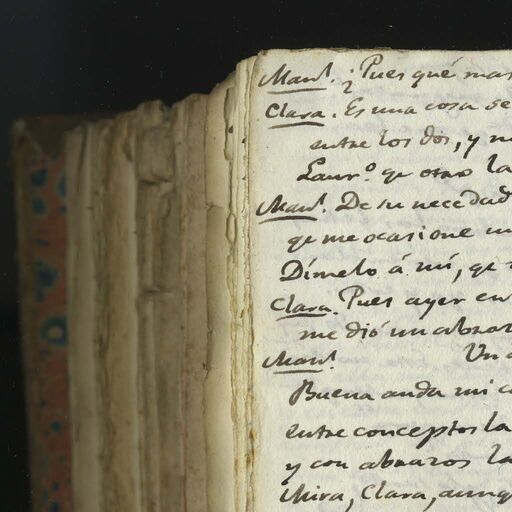 Man.l ¿Pues qué mas
Clara. Es una cosa se
entre los dos, y n
Laur.o qe otro la
Man.l De su necedad
qe me ocasione un
Dímelo á mí, qe
Clara. Pues ayer en
me dió un abraz
Man.l Un
Buena anda mi c
entre conceptos la
y con abrazos la
Mira, Clara, aunq